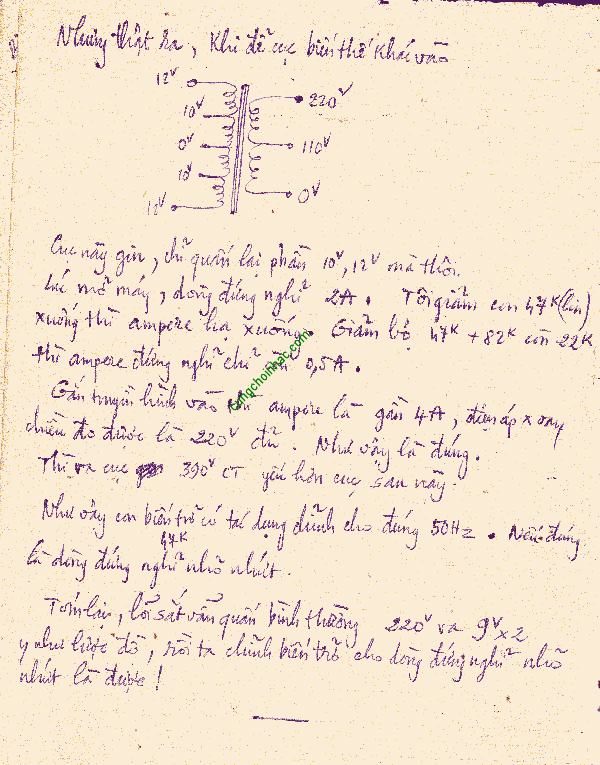 Nhưng thật ra, khi để cục biến thế khác vào
12V
10V
0V
10V
12V
220V
110V
0V
Cục này zin, chỉ quấn lại phần 10V, 12V mà thôi.
Lúc mở máy, dòng đứng nghỉ 2A. Tôi giảm con 47K (lin)
xuống thì ampere hạ xuống. Giảm bộ 47K + 82K còn 22K
thì ampere đứng nghỉ chỉ còn 0,5A.
Gắn truyền hình vào thì ampere là gần 4A, điện áp xoay
chiều đo được là 220V đủ. Như vậy là đúng.
Thì ra cục 390V CT yếu hơn cục sau này.
Như vậy con biến trở có tác dụng chỉnh cho đúng 50Hz. Nếu đúng
47K
là dòng đứng nghỉ nhỏ nhứt.
Tóm lại, lõi sắt vẫn quấn bình thường 220V và 9V x 2
y như lược đồ, rồi ta chỉnh biến trở cho dòng đứng nghỉ nhỏ
nhứt là được!
cungchoinhac.com